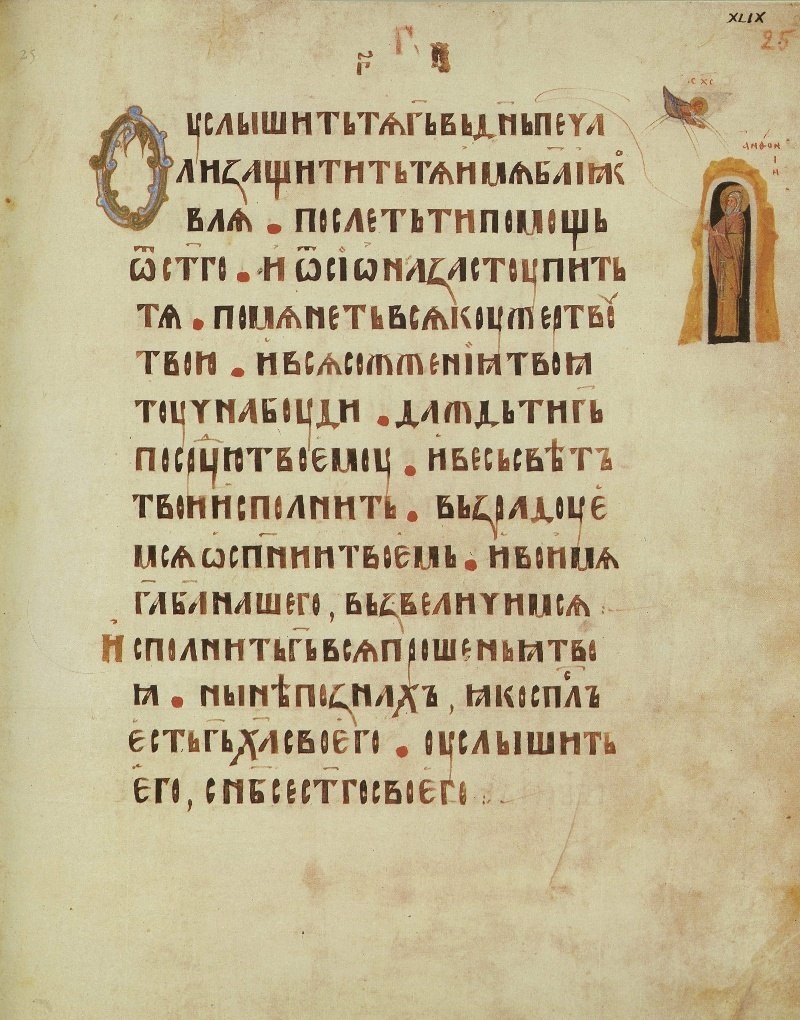 XLIX
25
25
І҃С Х҃С
АНѲОНІИ
Оуслышитьтѧгь҃вьдн҃ьпечал
лизащититьтѧимѧба҃іꙗко
влѧ . послетьтипомощь
ѿст҃го . и ѿсіѡназастоупить
тѧ . помѧнетьвсѧкоужертвоу
твою . ивсѧсожженіꙗтвоꙗ
тоучнабоуди . дажⷣьтигь҃
посрⷣцютвоемоу . ивесьсвѣтъ
твоиисполнить . вьзрадоуе
мсѧѡсп҃ниитвоемь . ивоимѧ
га҃ба҃нашего , вьзвеличимсѧ
исполнитьгь҃всѧпрошеньꙗтво
ꙗ . нынѣпознахъ , ꙗкосп҃лъ
естьгь҃ха҃своего . оуслышить
его , снб҃сест҃госвоего